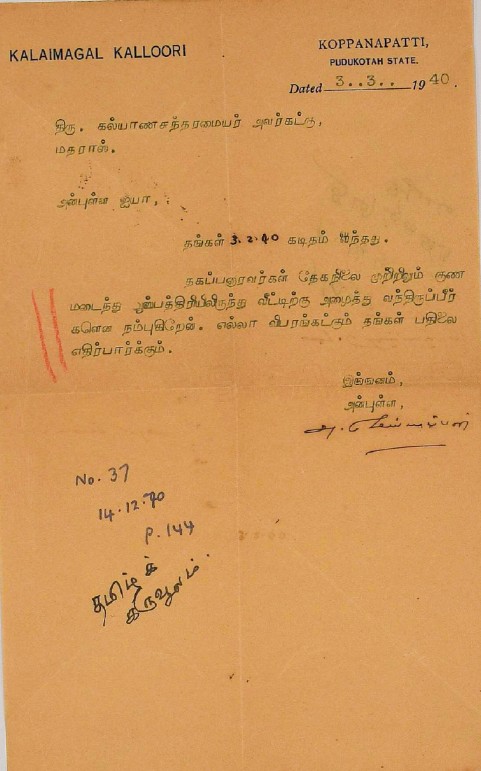 KALAIMAGAL KALLOORI
KOPPANAPATTI,
PUDUKOTAH STATE.
Dated 3..3.. 1940.
திரு. கல்யாணசுந்தரமையர் அவர்கட்கு,
மதராஸ்.
அன்புள்ள ஐயா,
தங்கள் 3.2.40 கடிதம் வந்தது.
தேகநிலை முற்றிலும் குண
மடைந்து ஆஸ்பத்திரியிலிருந்து வீட்டிற்கு அழைத்து வந்திருப்பீர்
களென நம்புகிறேன். எல்லா விபரங்கட்கும் தங்கள் பதிலை
எதிர்பார்க்கும்.
இங்ஙனம்,
அன்புள்ள,
No. 37
14.12.40
P. 144
தமிழ்க்